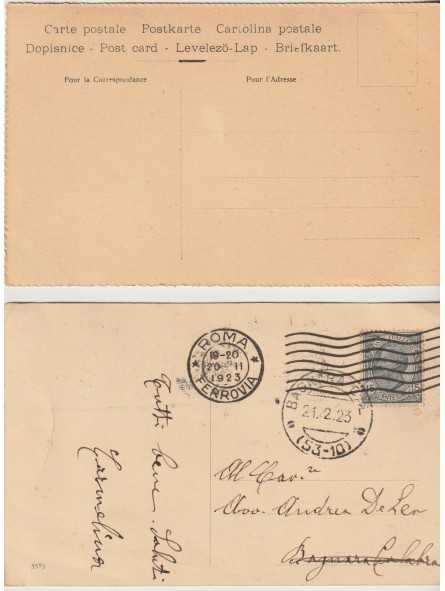 Carte postale Postkarte Cartolina postale
Dopisnice - Post card - Levelező-Lap - Briefkaart.
Pour la Correspondance
Pour l'Adresse
ROMA
19-20
20 II
1923
FERROVIA
21.2.23
(53-10)
Tutti bene. Saluti
Carmelina
Al Cav.re
Avv. Andrea De Leo
Bagnara Calabra